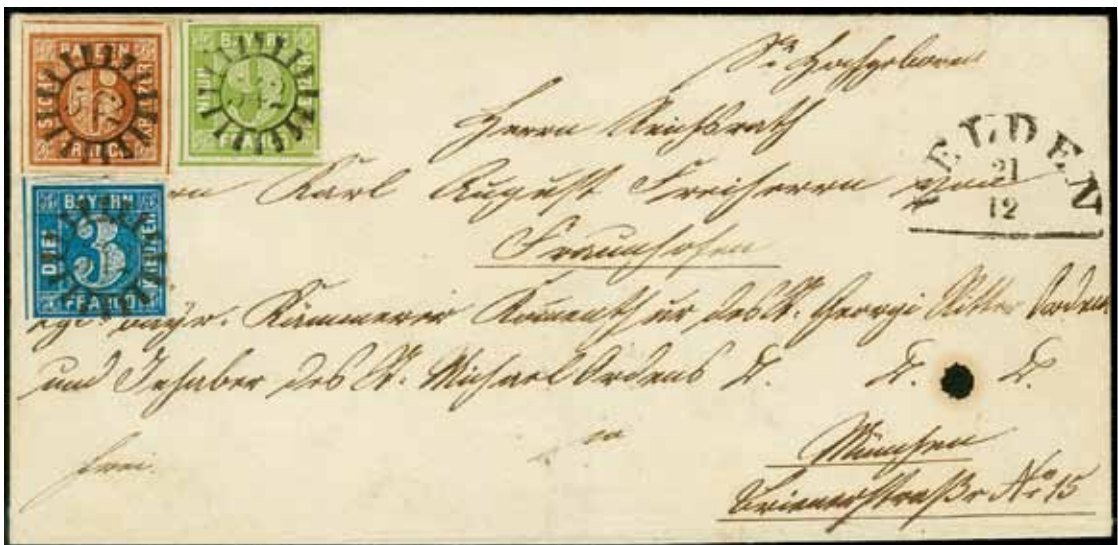 BAYERN
SECHS
KR^ZR
FRANCO
BAYERN
NEUN
KREUZER
FRANCO
BAYERN
DREI
3
KREUZER
FRANCO
VELDEN
21
12
Sr Hochgeboren
Herrn Reichsrath
Karl August Freiherrn von
Fraunhofen
bayr. Kämmerer Komenthur des St. Georgi Ritter Ordens
und Inhaber des St. Michael Ordens
frei.
in
München
Briennerstraße No 15